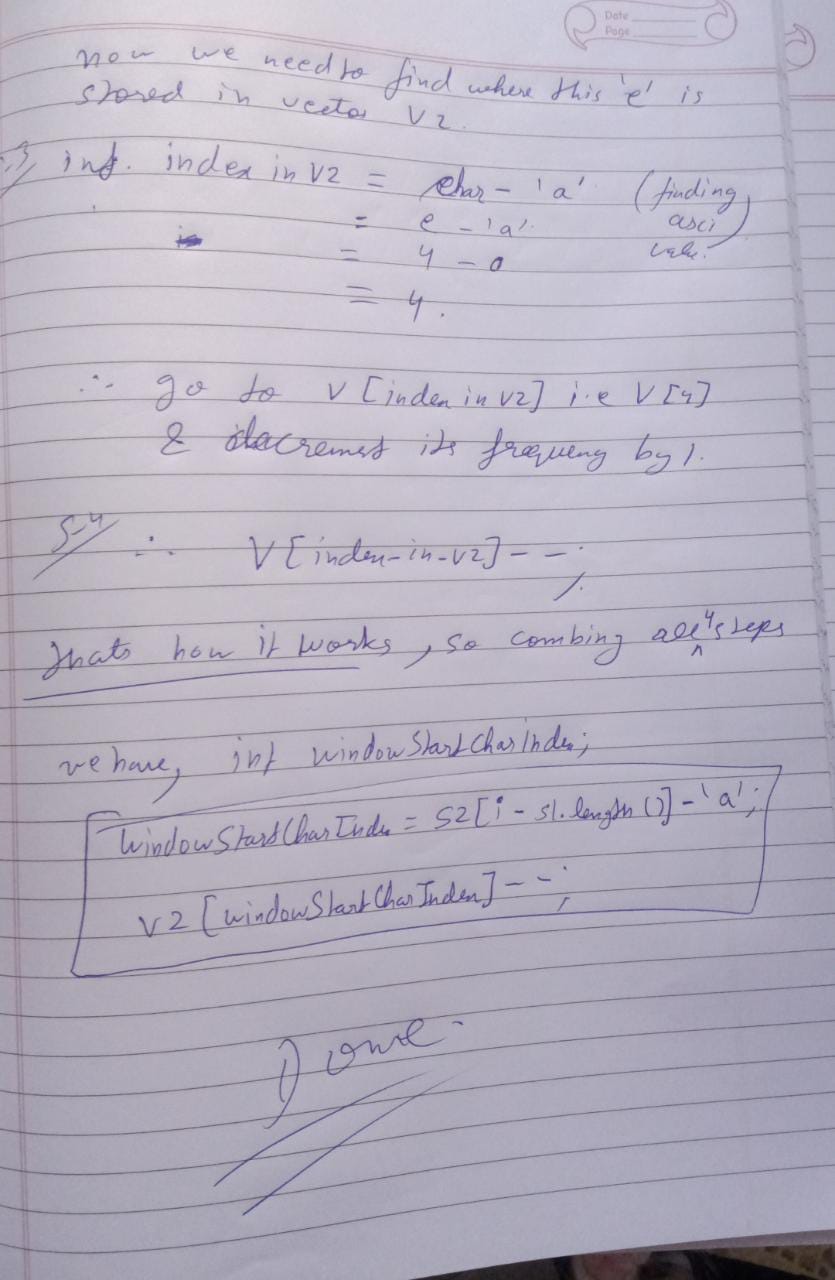 Date
Page
now we need to find where this 'e' is
stored in vector V2.
int. index in V2 = char - 'a' (finding
= e - 'a'. asci
= 4 - 0 value.)
= 4.
∴ go to V [index in V2] i.e V [4]
& decrement its frequency by 1.
S-4 ∴ V [index-in-v2] - - ;
Thats how it works, so combing all 4 steps
we have, int windowStartCharIndex;
WindowStartCharIndex = S2[i - s1.length()] - 'a';
V2 [windowStartCharIndex] - - ;
Done.